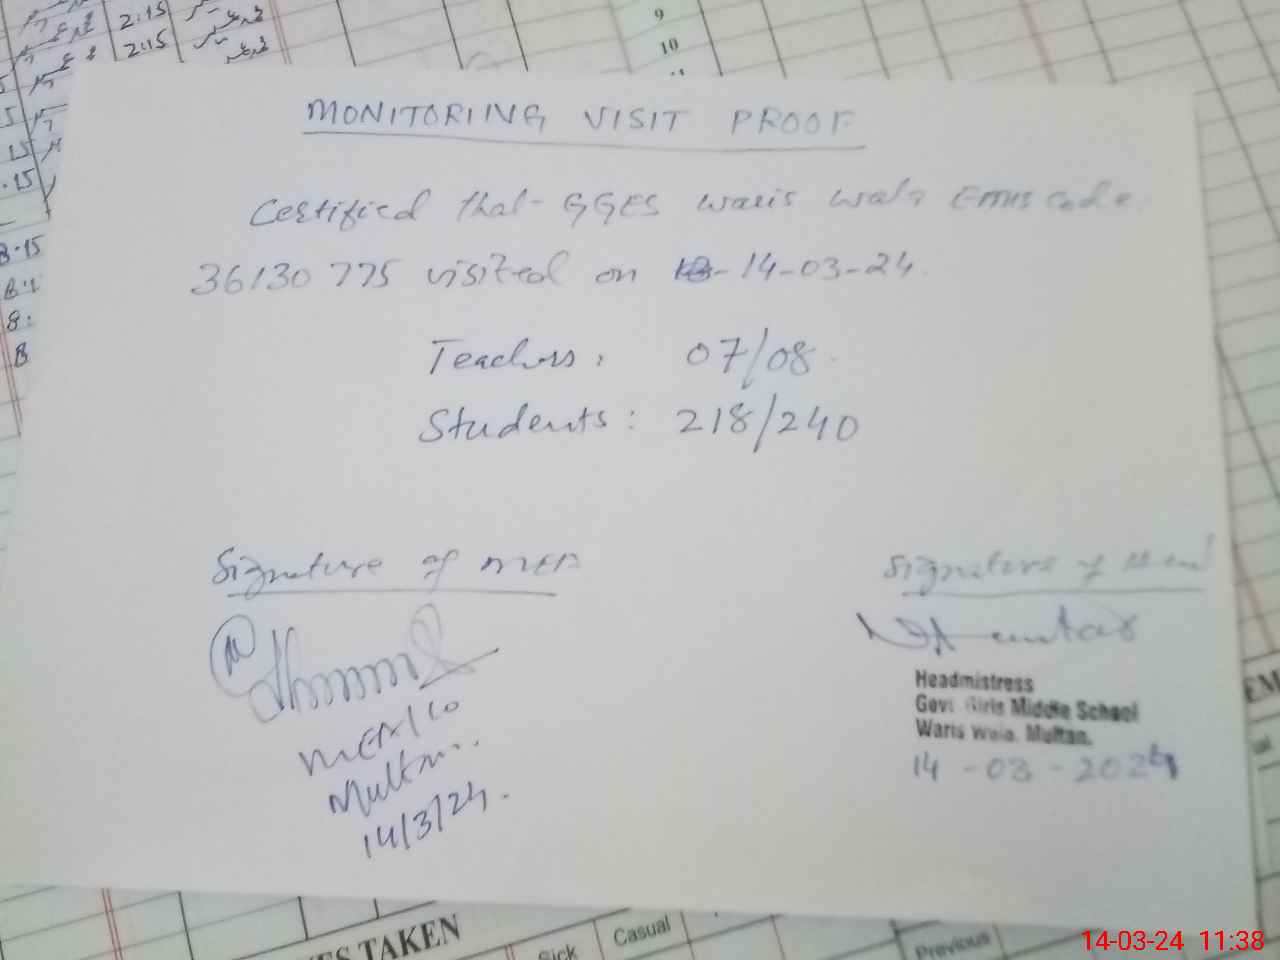 2:15
2:15
9
10
15
.15
8.15
8:
8
MONITORIING VISIT PROOF
Certified that GGES Waris Wala Emis Code
36130775 visited on 14-03-24.
Teachers: 07/08
Students: 218/240
Signature of MEA
Signature of Head
M
MEA/60
Multan
14/3/24.
Headmistress
Govt Girls Middle School
Waris Wala, Multan.
14-03-2024
ES TAKEN
Sick
Casual
Previous
EM
14-03-24 11:38